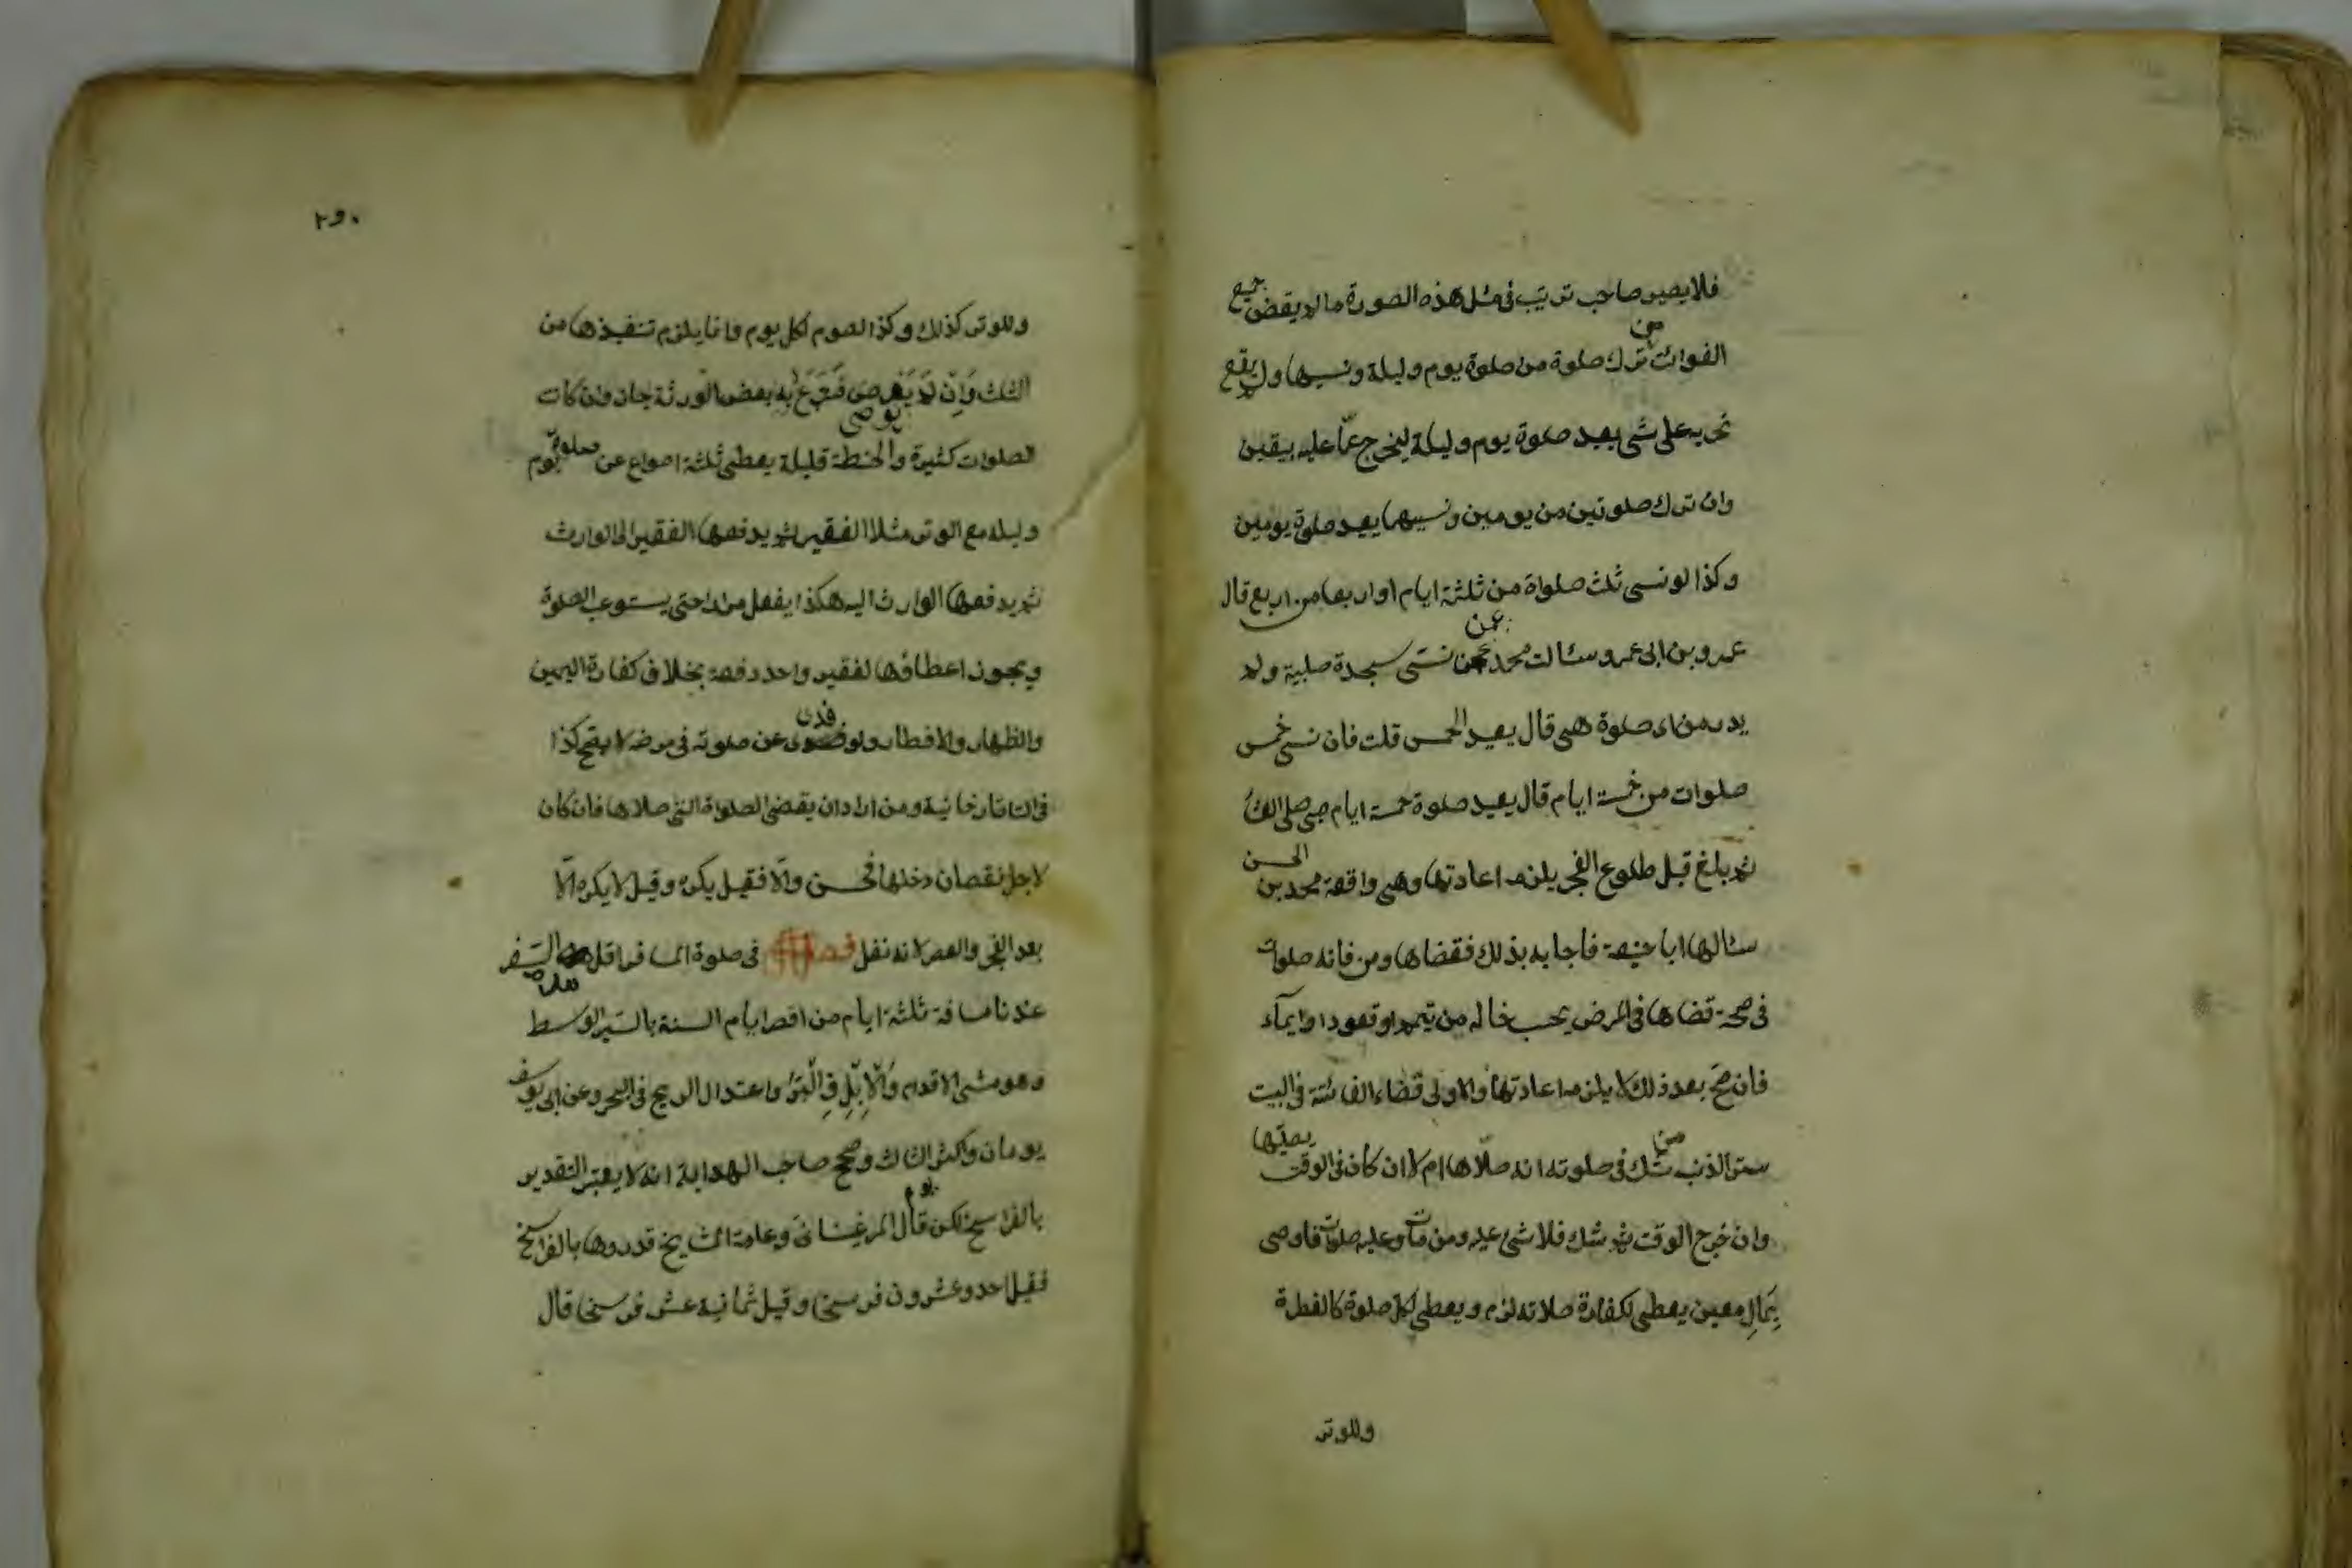 فلا يصير صاحب ترتيب فى مثل هذه الصورة ما لم يقض جميع
الفوائت من ترك صلوة من صلوة يوم وليلة ونسيها ولم يقع
تحريه على شى يعيد صلوة يوم وليلة ليخرج عمّا عليه بيقين
وان ترك صلوتين من يومين ونسيهما يعيد صلوة يومين
وكذا لو نسى ثلث صلواة من ثلثة ايام او اربعا من اربع قال
عمرو بن ابى عمرو سئالت محمد عمن نسى سجدة صلبية ولم
يدر من اى صلوة هى قال يعيد الخمس قلت فان نسى خمس
صلوات من خمسة ايام قال يعيد صلوة خمسة ايام صبى صلى العشاء
ثم بلغ قبل طلوع الفجر يلزمه اعادتها وهى واقعة محمد بن الحسن
سئالها ابا حنيفة فاجابه بذلك فقضاها ومن فاته صلوات
فى صحة قضاها فى المرض بحسب حاله من تيمم او قعود او ايمآء
فان صح بعد ذلك لا يلزمه اعادتها والاولى قضاء الفائتة فى البيت
ستر الذنب من شك فى صلوته انه صلّاها ام لا ان كان فى الوقت يصلّيها
وان خرج الوقت ثم شك فلا شئ عليه ومن مات وعليه صلوات فاوصى
بمالٍ معين يعطى لكفارة صلاته لزم ويعطى لكل صلوة كالفطرة
وللوتر
وللوتر كذلك وكذا لصوم كل يوم وانما يلزم تنفيذها من
الثلث وَاِنْ لَم يوصى فتبرع به بعض الورثة جاز وان كانت
الصلوات كثيرة والحنطة قليلة يعطى ثلثة اصواع عن صلوة يوم
وليلة مع الوتر مثلا الفقير ثم يدفعها الفقير الى الوارث
ثم يدفعها الوارث اليه هكذا يفعل مرارا حتى يستوعب الصلوة
ويجوز اعطاؤها لفقير واحد دفعة بخلاف كفارة اليمين
والظهار والافطار ولو فدى عن صلوته فى مرضه لا يصح كذا
فى التاتارخانية ومن اراد ان يقضى الصلوة التى صلاها فان كان
لاجل نقصان دخلها فحسن والّا فقيل يكره وقيل لا يكره الّا
بعد الفجر والعصر لانه نفل فصل فى صلوة المسافر اقل مدة السَفر
عندنا مسافة ثلثة ايام من اقصر ايام السنة بالسَير الوسط
وهو مشى الاقدام وَالْاِبِلِ فِى الْبَرّ واعتدال الريح فى البحر وعن ابى يوسف
يومان واكثر الثالث وصحح صاحب الهداية انه لا يعتبر التقدير
بالفراسخ لكن قال المرغينانى وعامة المشايخ قدروها بالفراسخ
فقيل احد وعشرون فرسخا وقيل ثمانية عشر فرسخا قال